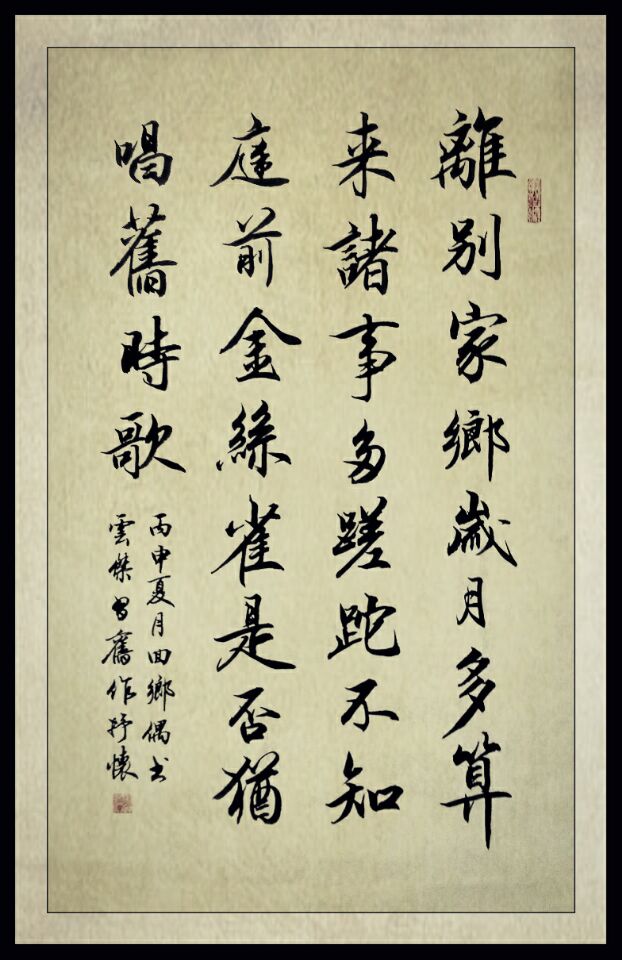 離別家鄉歲月多算
来諸事多蹉跎不知
庭前金絲雀是否猶
唱舊時歌
丙申夏月回鄉偶书
雲傑習舊作抒懷